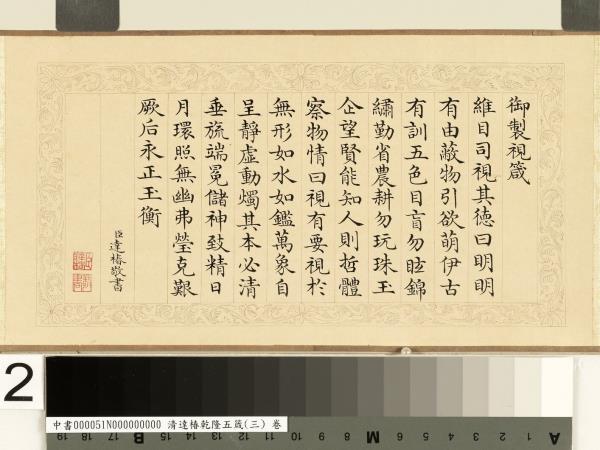 御製視箴
維目司視其德曰明明
有由蔽物引欲萌伊古
有訓五色目盲勿眩錦
繡勤省農耕勿玩珠玉
企望賢能知人則哲體
察物情曰視有要視於
無形如水如鑑萬象自
呈靜虛動燭其本必清
垂旒端冕儲神致精日
月環照無幽弗瑩克艱
厥后永正玉衡
臣達椿敬書
2
中書000051N000000000 清達椿乾隆五箴(三) 卷
19 18 17 B 16 15 14 13 12 11 10 9 8 M 7 6 5 4 3 2 1 A